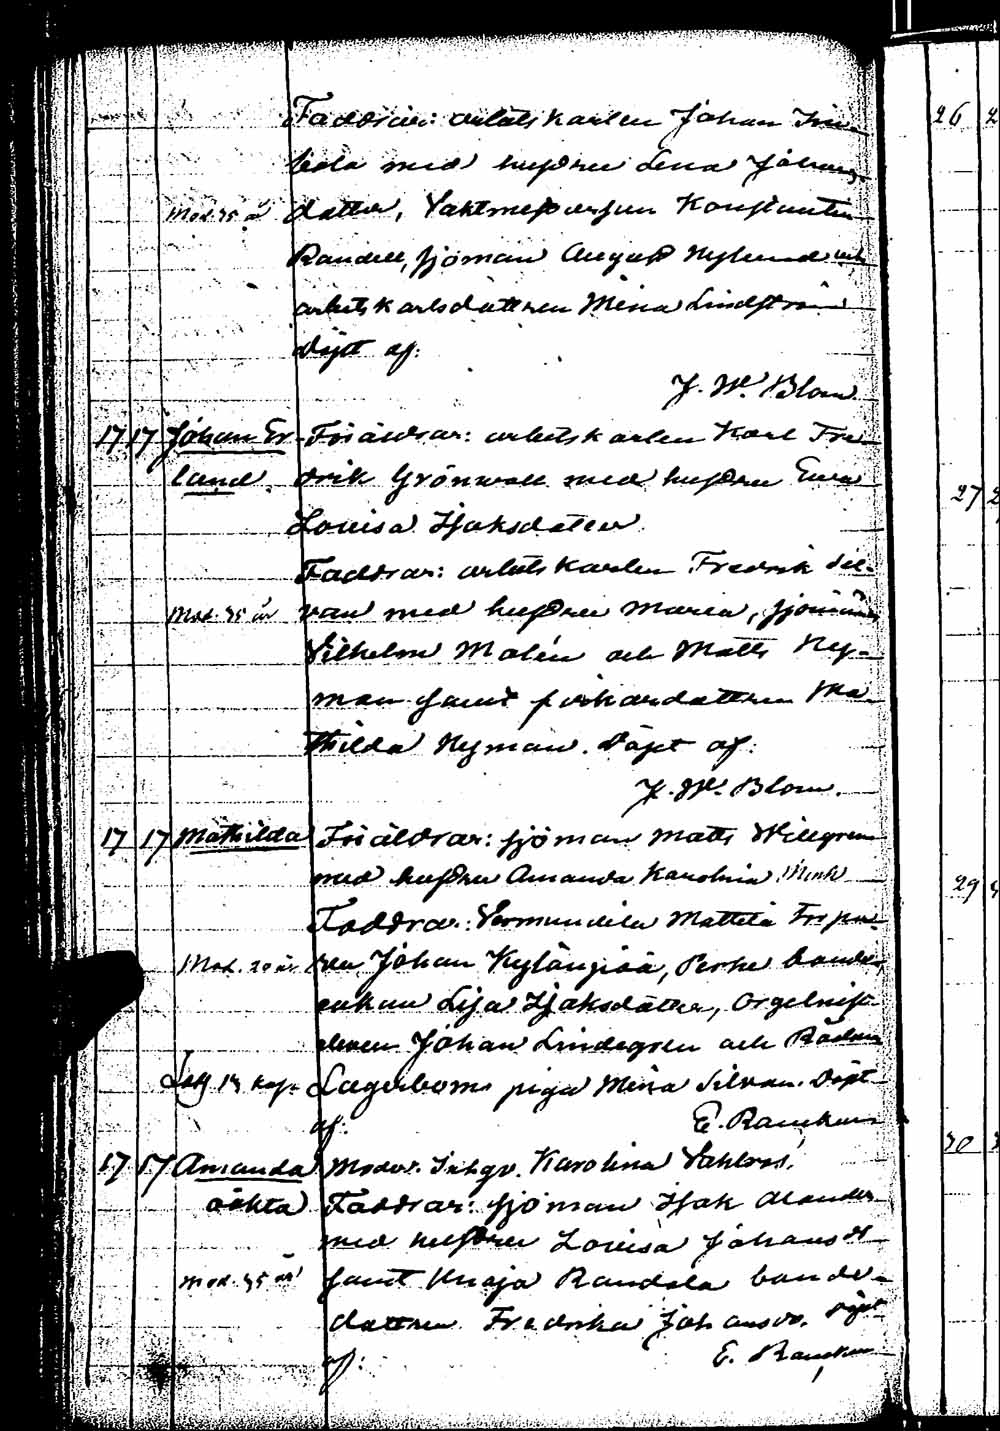 Faddrar: arbetskarlen Johan
bola med hustru Lena Johans-
Mod. 35 år dotter, Vaktmest Konstantin
Randell, sjöman August Nylund och
arbetskarlsdottren Mina Lindström
döpt af:
J. W. Blom
17 17 Johan Er- Föräldrar: arbetskarlen Karl Fre-
land. drik Grönwall med hustru Eva
Lovisa Isaksdotter
Faddrar: arbetskarlen Fredrik Sil-
Mod. 35 år van med hustru Maria, sjömän
Vilhelm Malén och Matts Ny-
man samt fiskardottren Ma-
thilda Nyman. Döpt af:
J. W. Blom.
17 17 Mathilda Föräldrar: sjöman Matts Willgren
med hustru Amanda Karolina
Faddrar: Mattila
Mod. 20 år Johan Kylänpää, Perke bonde-
enkan Lisa Isaksdotter, Orgelnist-
eleven Johan Lindegren och Rådm
Lagerboms piga Mina Silvan. Döpt
af: E.
17 17 Amanda Moder: Inhys. Karolina
oäkta Faddrar: sjöman Isak Alander
med hustru Lovisa Johansdr
Mod. 35 år samt Knaja Randela bonde-
dottren Fredrika Johansdr. Döpt
af: E.
26
27
29
30